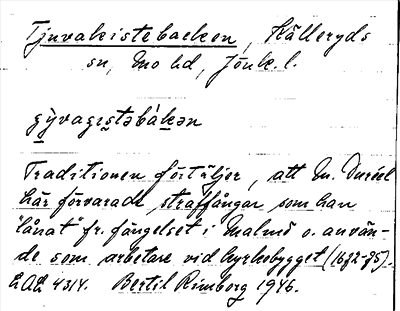 Tjuvakistebacken, Källeryds
sn, Mo hd, Jönk. l.
gỳvagıstəbákən
Traditionen förtäljer, att M. Durèel
här förvarade straffångar som han
"lånat" fr. fängelset i Malmö o. använ-
de som arbetare vid kyrkobygget (1672-75).
LAL 4314. Bertil Rimborg 1946.